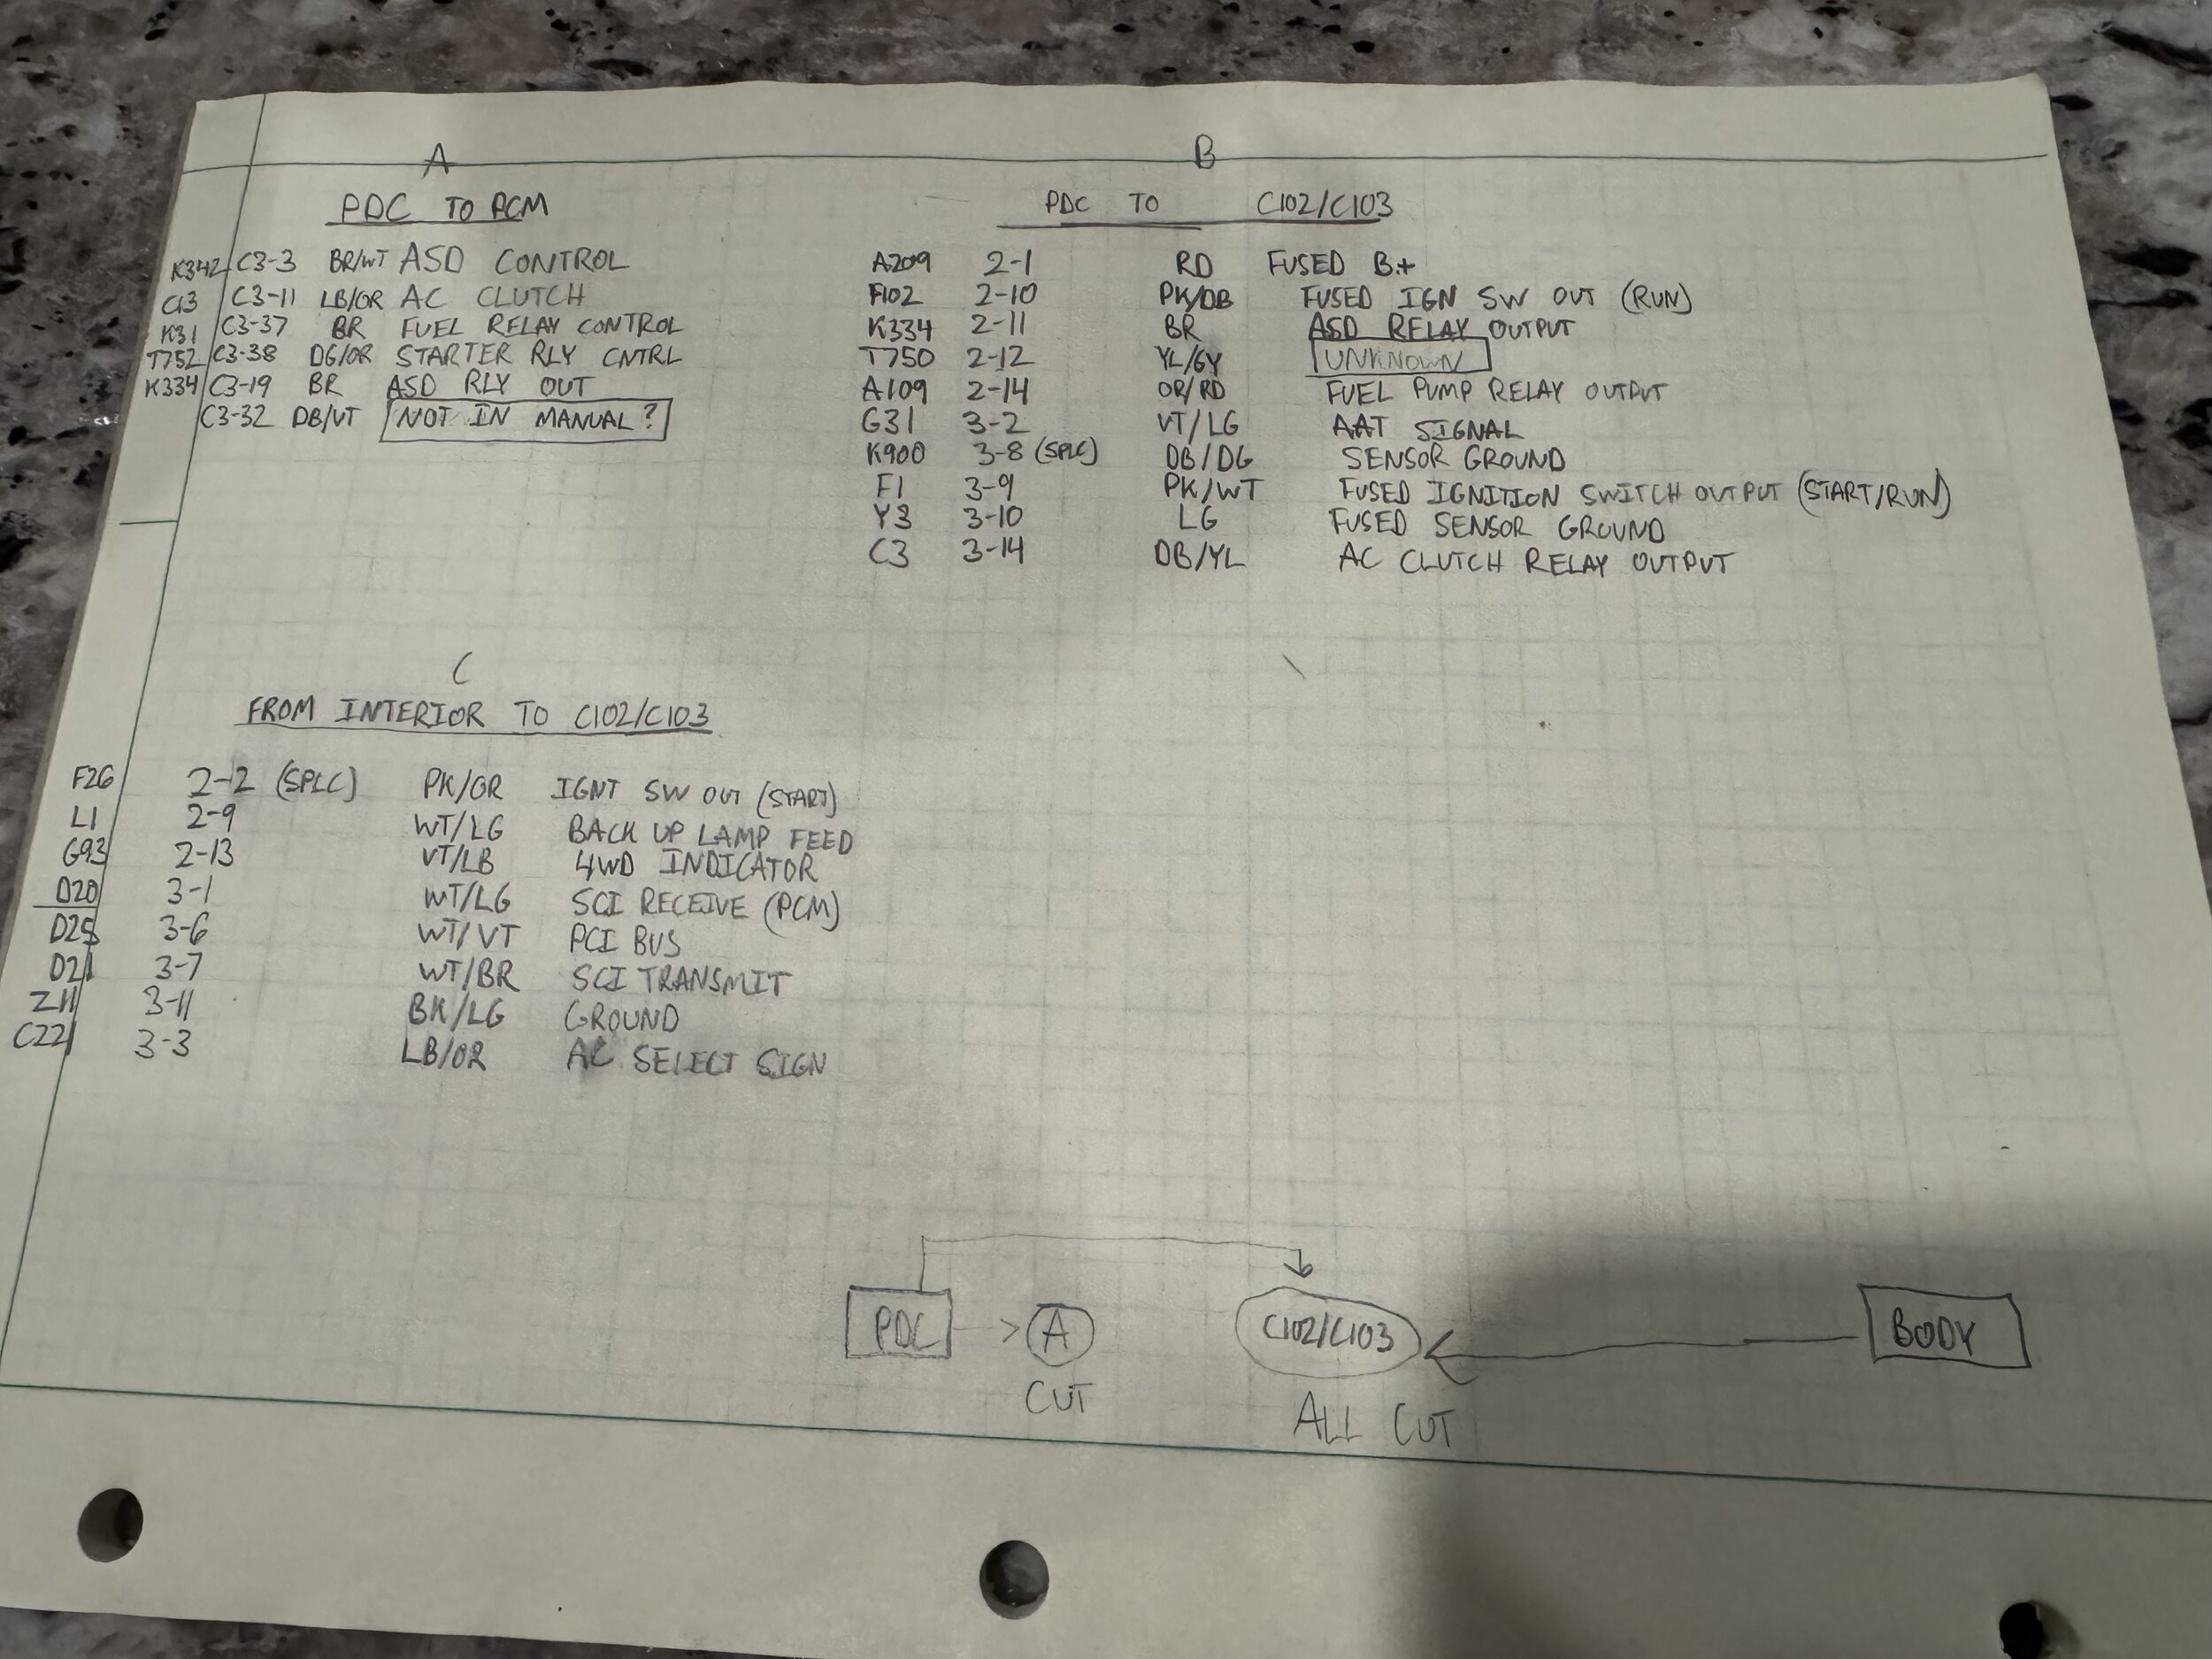 A
PDC TO PCM
K342 C3-3 BR/WT ASD CONTROL
C13 C3-11 LB/OR AC CLUTCH
K31 C3-37 BR FUEL RELAY CONTROL
T752 C3-38 DG/OR STARTER RLY CNTRL
K334 C3-19 BR ASD RLY OUT
C3-32 DB/VT NOT IN MANUAL?
B
PDC TO C102/C103
A209 2-1 RD FUSED B+
F102 2-10 PK/DB FUSED IGN SW OUT (RUN)
K334 2-11 BR ASD RELAY OUTPUT
T750 2-12 YL/GY UNKNOWN
A109 2-14 OR/RD FUEL PUMP RELAY OUTPUT
G31 3-2 VT/LG AAT SIGNAL
K900 3-8 (SPLC) DB/DG SENSOR GROUND
F1 3-9 PK/WT FUSED IGNITION SWITCH OUTPUT (START/RUN)
Y3 3-10 LG FUSED SENSOR GROUND
C3 3-14 DB/YL AC CLUTCH RELAY OUTPUT
C
FROM INTERIOR TO C102/C103
F26 2-2 (SPLC) PK/OR IGNT SW OUT (START)
L1 2-9 WT/LG BACK UP LAMP FEED
G93 2-13 VT/LB 4WD INDICATOR
D20 3-1 WT/LG SCI RECEIVE (PCM)
D25 3-6 WT/VT PCI BUS
D21 3-7 WT/BR SCI TRANSMIT
Z11 3-11 BK/LG GROUND
C221 3-3 LB/OR AC SELECT SIGN
PDC > A C102/C103 BODY
CUT ALL CUT